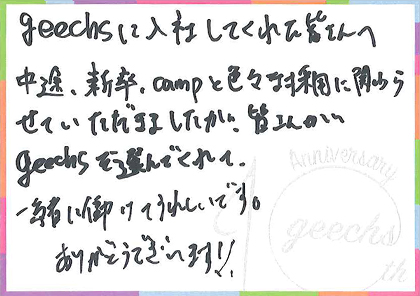 geechsに入社してくれた皆さんへ
中途、新卒、campと色々な採用に関わら
せていただきましたが、皆さんが
geechsを選んでくれて、
一緒に働けてうれしいです。
ありがとうございます!!
Anniversary
geechs
th